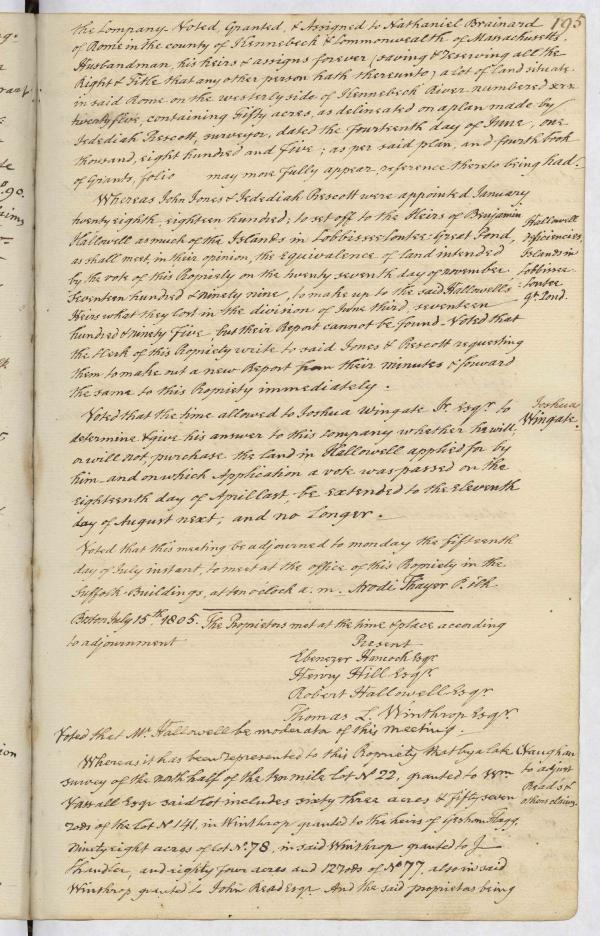 195
the Company. Voted, Granted, & Assigned to Nathaniel Brainard
of Rome in the county of Kennebeck & Commonwealth of Massachusetts,
Husbandman, his heirs & assigns forever (saving & reserving all the
Right & Title that any other person hath thereunto) a lot of land situate
in said Rome on the westerly side of Kennebeck River numbered
twenty five, containing Fifty acres, as delineated on a plan made by
Jedediah Prescott, surveyor, dated the Fourteenth day of June, one
thousand, eight hundred and Five; as per said plan, and fourth book
of Grants, folio may more fully appear, reference thereto being had.
Whereas John Jones & Jedediah Prescott were appointed January
twenty eighth, eighteen hundred; to set off to the Heirs of Benjamin
Hallowell as much of the Islands in Cobbissecontee Great Pond,
as shall meet, in their opinion, the equivalence of land intended
by the vote of this Propriety on the twenty seventh day of november
Seventeen hundred & ninety nine, to make up to the said Hallowell's
Heirs what they lost in the division of June third, seventeen
hundred & ninety Five, but their Report cannot be found. Voted that
the Clerk of this Propriety write to said Jones & Prescott requesting
them to make out a new Report from their minutes & forward
the same to this Propriety immediately.
Hallowell
deficiencies,
Islands in
Cobbisse-
contee
Gt. Pond.
Voted that the time allowed to Joshua Wingate Jr. Esqr. to
determine & give his answer to this Company whether he will,
or will not, purchase the land in Hallowell applied for by
him and on which Application a vote was passed on the
eighteenth day of April last, be extended to the eleventh
day of August next, and no longer.
Joshua
Wingate.
Voted that this meeting be adjourned to monday the fifteenth
day of July instant, to meet at the office of this Propriety in the
Suffolk Buildings, at ten o'clock a.m. Arodi Thayer P. Clk
Boston July 15th 1805. The Proprietors met at the time & place according
to adjournment
Present
Ebenezer Hancock Esqr
Henry Hill Esqr.
Robert Hallowell Esqr
Thomas L. Winthrop Esqr.
Voted that Mr. Hallowell be moderator of this meeting.
Whereas it has been represented to this Propriety that by a late
survey of the north half of the ten mile lot No 22, granted to Wm
Vassall Esqr said lot includes sixty three acres & fifty seven
rods of the lot No 141, in Winthrop granted to the heirs of Gershom Flagg,
Ninety eight acres of lot No. 78, in said Winthrop granted to J
Chandler, and eighty four acres and 12 rods of No 77, also in said
Winthrop granted to John Read Esqr. And the said proprietors being
Vaughan
to adjust
Read's &
others claim.